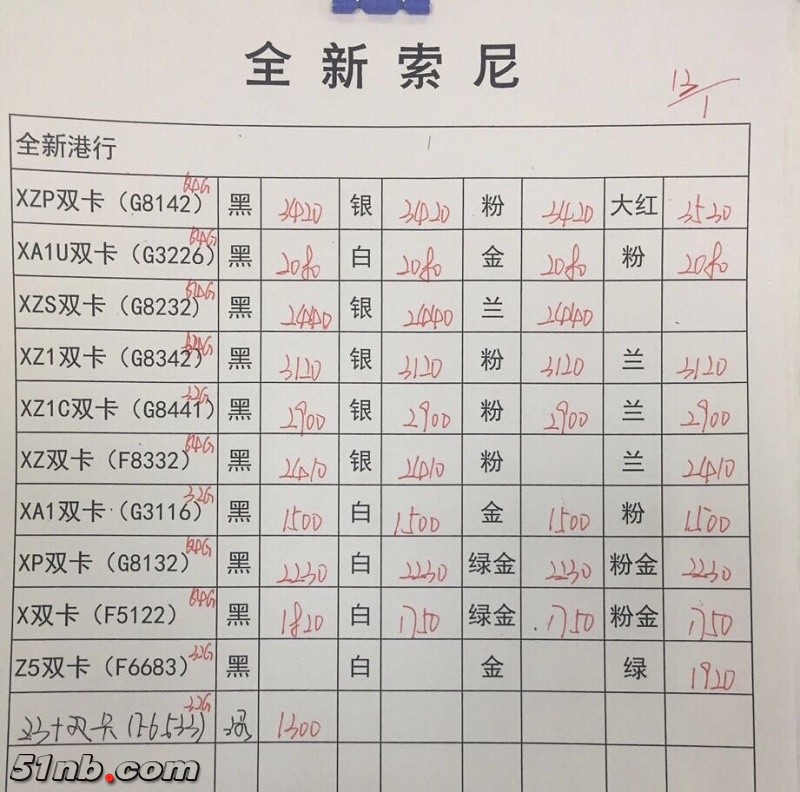 全新索尼
13/1
全新港行
XZP双卡（G8142）64G 黑 3420 银 3420 粉 3420 大红 3530
XA1U双卡（G3226）64G 黑 2080 白 2080 金 2080 粉 2080
XZS双卡（G8232）64G 黑 2440 银 2440 兰 2440
XZ1双卡（G8342）64G 黑 3120 银 3120 粉 3120 兰 3120
XZ1C双卡（G8441）32G 黑 2900 银 2900 粉 2900 兰 2900
XZ双卡（F8332）64G 黑 2410 银 2410 粉 兰 2410
XA1双卡（G3116）32G 黑 1500 白 1500 金 1500 粉 1500
XP双卡（G8132）64G 黑 2230 白 2230 绿金 2230 粉金 2230
X双卡（F5122）64G 黑 1820 白 1750 绿金 1750 粉金 1750
Z5双卡（F6683）32G 黑 白 金 绿 1920
Z3+双卡（F6533）32G 1300
51nb.com